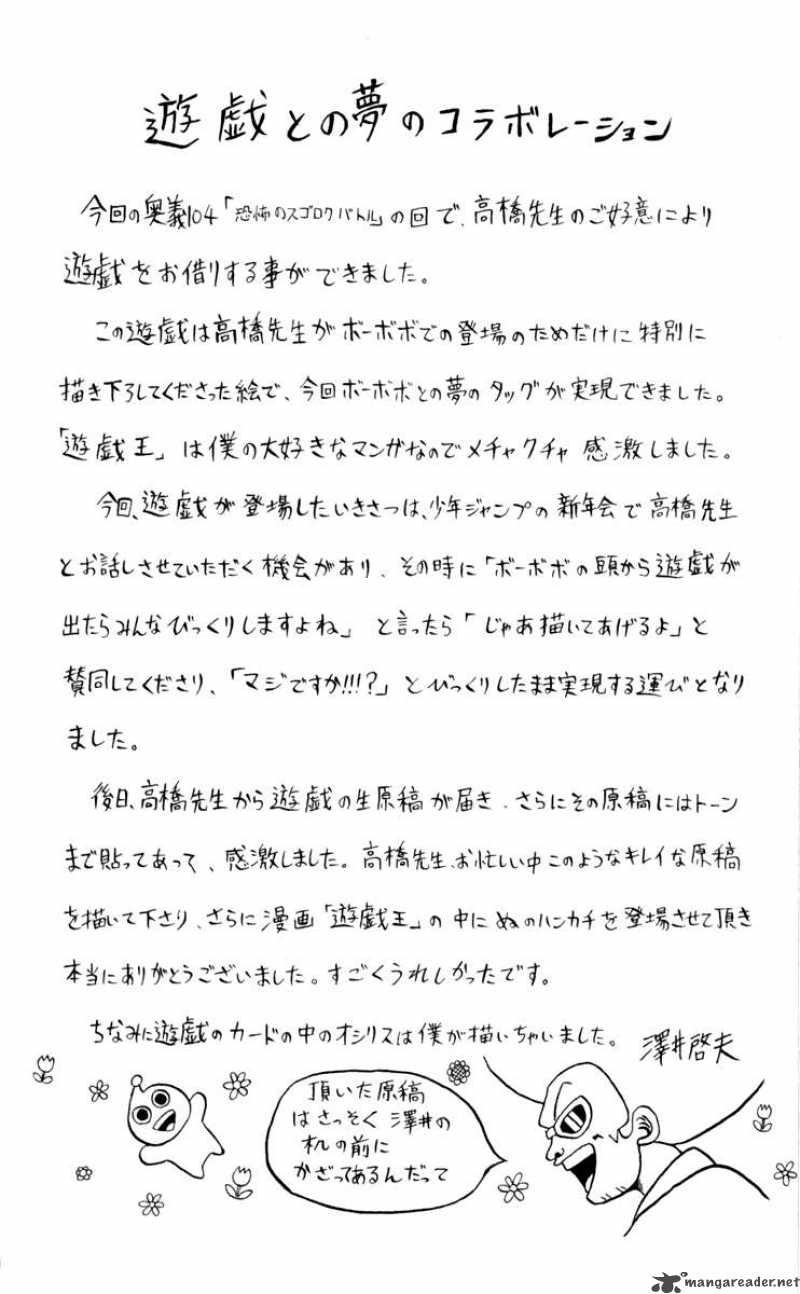 遊戯との夢のコラボレーション
今回の奥義104「恐怖のスゴロクバトル」の回で、高橋先生のご好意により
遊戯をお借りする事ができました。
この遊戯は高橋先生がボーボボでの登場のためだけに特別に
描き下ろしてくださった絵で、今回ボーボボとの夢のタッグが実現できました。
「遊戯王」は僕の大好きなマンガなのでメチャクチャ感激しました。
今回、遊戯が登場したいきさつは、少年ジャンプの新年会で高橋先生
とお話しさせていただく機会があり、その時に「ボーボボの頭から遊戯が
出たらみんなびっくりしますよね」と言ったら「じゃあ描いてあげるよ」と
賛同してくださり、「マジですか!!!?」とびっくりしたまま実現する運びとなり
ました。
後日、高橋先生から遊戯の生原稿が届き、さらにその原稿にはトーン
まで貼ってあって、感激しました。高橋先生、お忙しい中このようなキレイな原稿
を描いて下さり、さらに漫画「遊戯王」の中にぬのハンカチを登場させて頂き
本当にありがとうございました。すごくうれしかったです。
ちなみに遊戯のカードの中のオシリスは僕が描いちゃいました。
澤井啓夫
頂いた原稿
はさっそく澤井の
机の前に
かざってあるんだって
mangareader.net